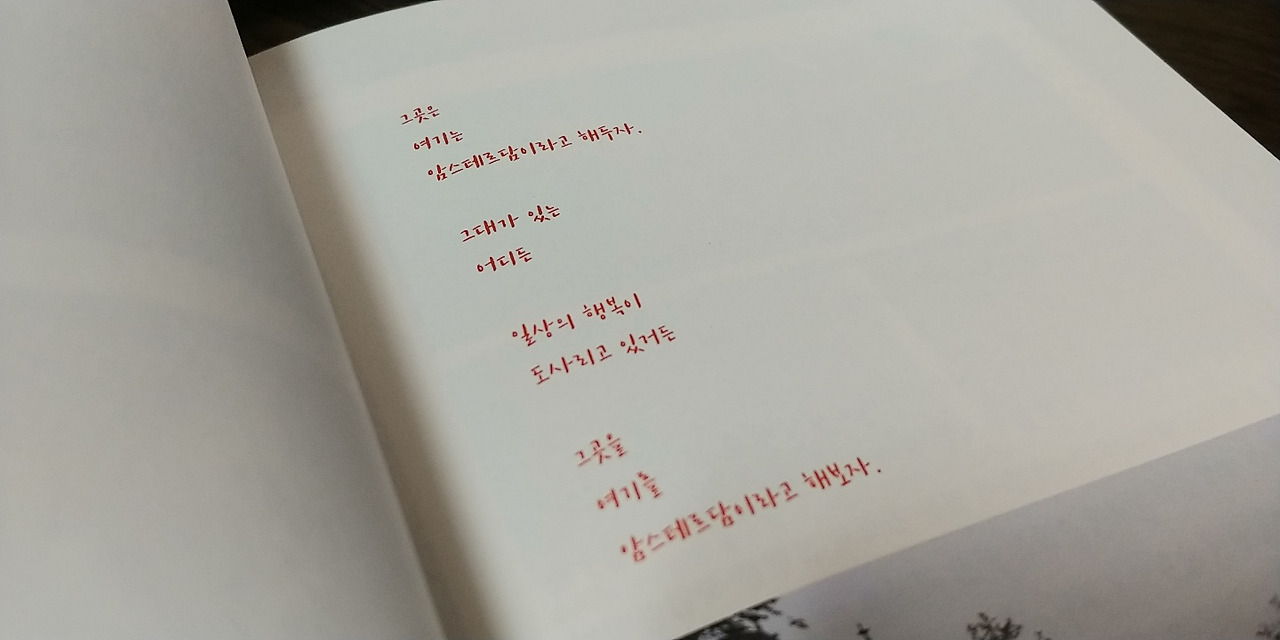 그곳은
여기는
암스테르담이라고 해두자.
그대가 있는
어디든
일상의 행복이
도사리고 있거든
그곳을
여기를
암스테르담이라고 해보자.